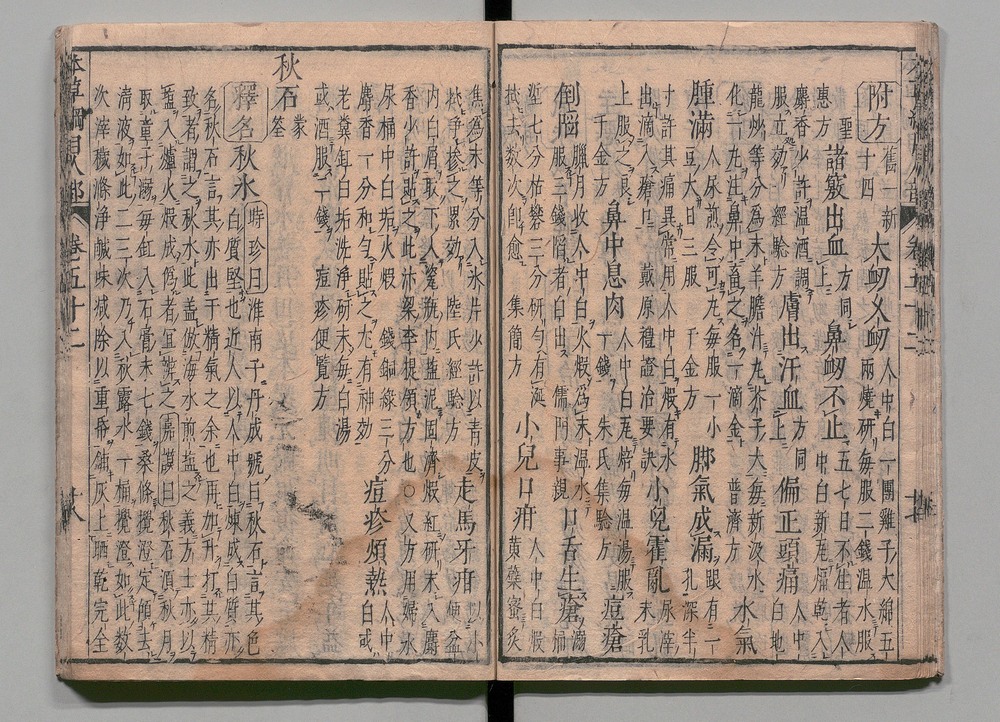 附方 舊一新十四
大衄久衄 人中白一團雞子大綿五
兩燒研每服二錢温水服
聖惠方 諸竅出血 方同上
鼻衄不止 五七日不住者人
中白新瓦焙乾入
麝香少許温酒調
服立効 經驗方
膚出汗血 方同上
偏正頭痛 人中白地
龍炒等分為末羊膽汁丸芥子大每新汲水
化一丸注鼻中㗜之名一滴金 普濟方
水氣腫滿 人尿煎令可丸每服一小
豆大日三服 千金方
脚氣成漏 跟有一孔深半
寸許其痛異常用人中白煅有水
出滴入瘡口 戴原禮證治要訣
小兒霍亂 尿滓末乳
上服之良 千金方
鼻中息肉 人中白瓦焙每温湯服
一錢 朱氏集驗方
痘瘡倒陷 臘月收人中白火煅為末温水
服三錢陷者自出 儒門事親
口舌生瘡
垽七分枯礬三分研勻有涎
拭去数次即愈 集簡方
小兒口疳 人中白煅黃蘗蜜炙
焦為末等分入冰片少許以青皮
拭淨摻之累効 陸氏經驗方
走馬牙疳 以小便盆
内白屑取下入瓷瓶内鹽泥固濟煅紅研末入麝
香少許貼之此汴梁李提領方也○又方用婦人
尿桶中白垢火煅一錢銅綠三分
麝香一分和勻貼之尤有神効
痘疹煩熱 人中白或
老糞缸白垢洗淨研末每白湯
或酒服二錢 痘疹便覽方
秋石 蒙筌
釋名 秋氷 時珍曰淮南子丹成號曰秋石言其色
白質堅也近人以人中白煉成白質亦
名秋石言其亦出于精氣之余也再加升打其精
致者謂之秋氷此蓋倣海水煎鹽之義方士亦以
鹽入爐火煅成偽者宜辨之 嘉謨曰秋石須秋月
取童子溺每缸入石膏末七錢桑條攪澄定傾去
清液如此二三次乃入秋露水一桶攪澄如此数
次滓穢滌淨鹹味減除以重帋鋪灰上晒乾完全
本草綱目人部 卷五十二